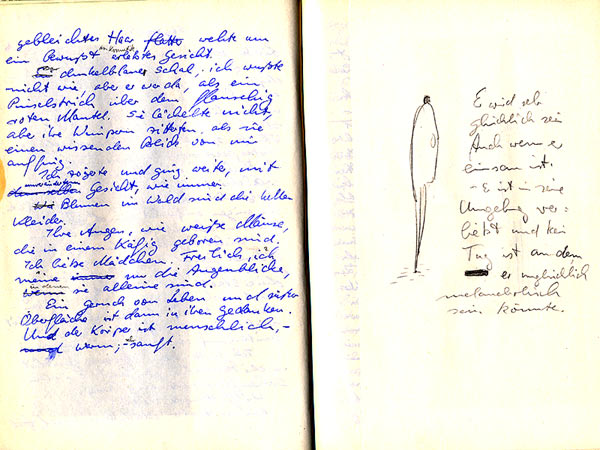 gebleichtes Haar flatte wehte um
ein bewußt erlebtes Gesicht.
dunkelblauer Schal, ich wußte
nicht wie, aber er war da, als ein
Pinselstrich über dem flauschig
roten Mantel. Sie lächelte nicht,
aber ihre Wimpern zittern, als sie
einen wissenden Blick von mir
auffing.
Ich zögerte und ging weiter, mit
demselben Gesicht, wie immer.
Blumen im Wald sind die hellen
Kleider.
Ihre Augen, wie weiße Mäuse,
die in einem Käfig geboren sind.
Ich liebe Mädchen. Freilich, ich
meine nur die Augenblicke,
sie alleine sind.
Ein geruch von Leben und süßer
Oberfläche ist dann in ihren gedanken.
Und der Körper ist menschlich, -
warm, - sanft.
Er wird sehr
glücklich sein
Auch wenn er
einsam ist.
- Er ist in seine
Umgebung ver=
liebt und kein
Tag ist an dem
er unglücklich
melancholisch
sein könnte.